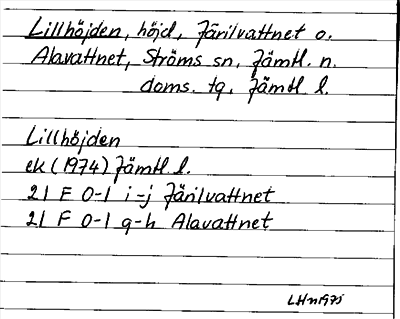 Lillhöjden, höjd, Järilvattnet o.
Alavattnet, Ströms sn, Jämtl. n.
doms. tg, Jämtl l.
Lillhöjden
ek (1974) Jämtl. l.
21 E 0-1 i-j Järilvattnet
21 F 0-1 g-h Alavattnet
LHn1975